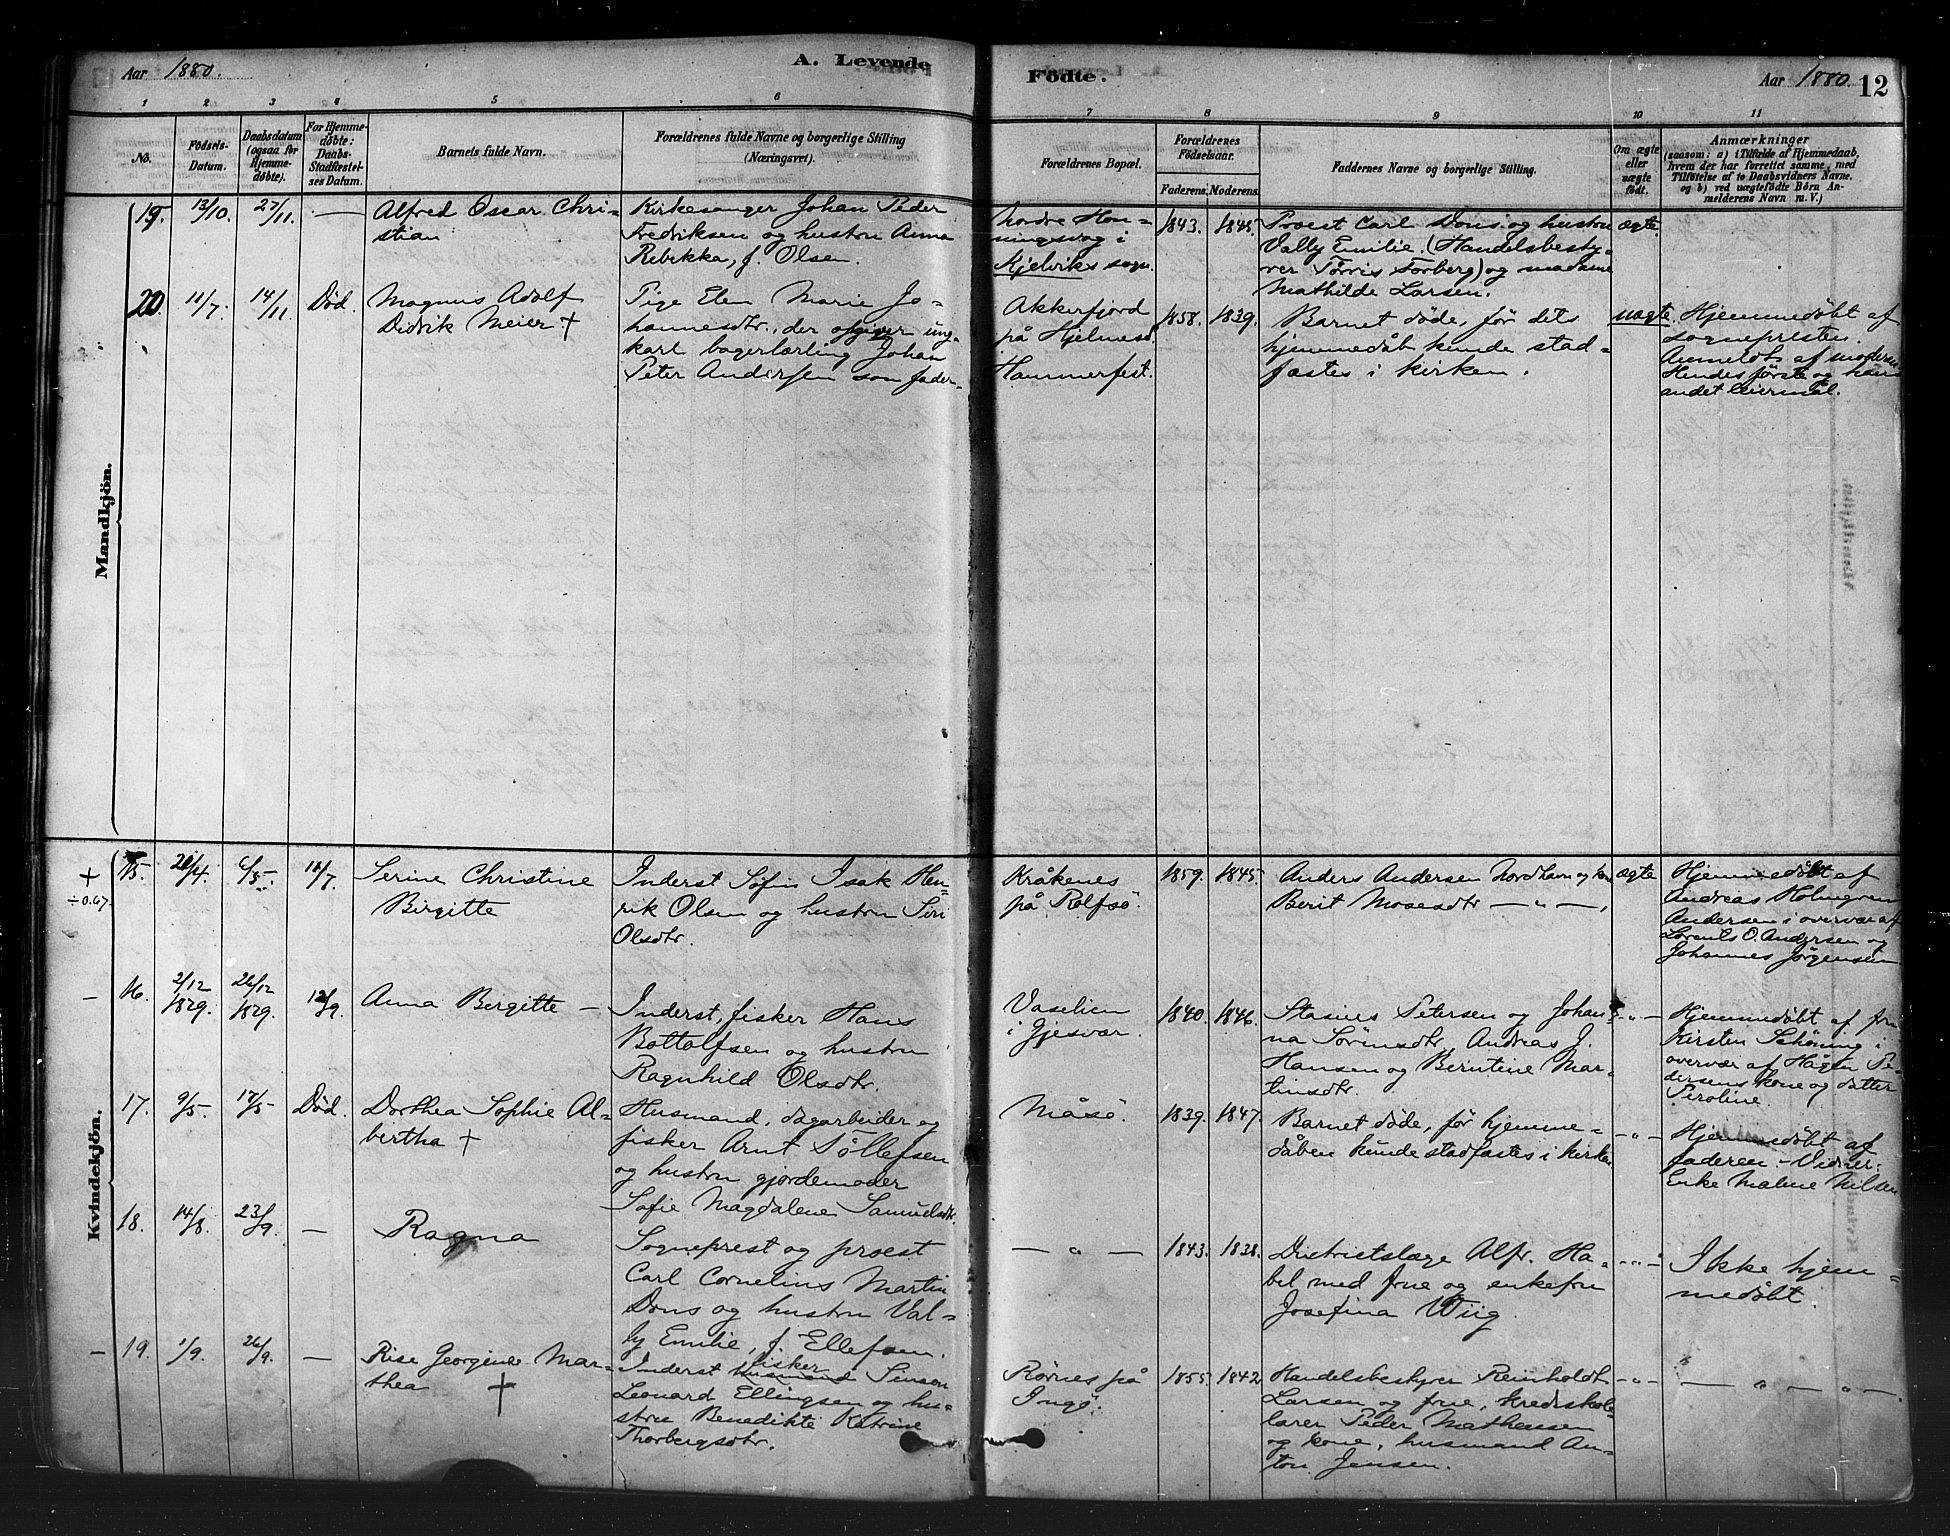 Aar 1880.
A. Levende
Födte.
Aar 1880. 12
1 2 3 4 5 6 7 8 9 10 11
No.
Födsels-Datum.
Daabsdatum (ogsaa for Hjemme-döbte).
For Hjemme-döbte: Daabs-Stadfæstel-ses Datum.
Barnets fulde Navn.
Forældrenes fulde Navne og borgerlige Stilling (Næringsvei).
Forældrenes Bopæl.
Forældrenes Födselsaar.
Faderens. Moderens.
Faddernes Navne og borgerlige Stilling.
Om ægte eller uægte födt.
Anmærkninger
(saasom: a) i Tilfælde af Hjemmedaab, hvem der har forrettet samme, med Tilföielse af to Daabsvidners Navne. og b) ved uægtefödte Börn An-melderens Navn m. V.)
Mandkjön.
19. 13/10. 27/11. — Alfred Oscar Chri-
stian
Kirkesanger Johan Peder
Fredriksen og hustru Anna
Rebekka, f. Olsen.
Nordre Hon-
ningsvog i
Kjelviks sogn.
1843. 1845.
Proest Carl Dons og hustru
Vally Emilie. (Handelsbesty-
rer Törris Forberg) og madame
Mathilde Larsen.
ægte.
20. 11/7. 14/11. Död. Magnus Adolf
Didrik Meier +
Pige Elen Marie Jo-
hannesdtr., der opgiver ung-
karl bagerlærling Johan
Peter Andersen som fader.
Akkerfjord
på Hjelmesö.
Hammerfest.
1858. 1839.
Barnet döde, för dets
hjemmedåb kunde stad-
fæstes i kirken.
uægte.
Hjemmedöbt af
sognepresten.
Anmeldt af moderen.
Hendes förste og hans
andet leiermål.
Kvindekjön.
+
÷ 0.67.
15. 20/4. 6/5. 18/7. Serine Christine
Birgitte
Inderst Söfin Isak Hen-
rik Olsen og hustru Siri
Olsdtr.
Kråkenes
på Rolfsö.
1859. 1845.
Anders Andersen Nordhavn og kone
Berit Mosesdtr — " —,
ægte
Hjemmedöbt af
Andreas Holmgren
Andersen i overvær af
Lorents O. Andersen og
Johannes Jörgensen
— 16. 2/12 1829. 26/12 1829. 12/9. Anna Birgitte —
Inderst, fisker Hans
Bottolfsen og hustru
Ragnhild Olsdtr.
Vaselien
i Gjesvær.
1840. 1846.
Stasius Petersen og Johan-
na Sörinsdtr Andreas J.
Hansen og Berntine Mar-
tinsdtr.
— " —
Hjemmedöbt af fru
Kirsten Schöning i
overvær af Hågen Pe-
dersens kone og datter
Peroline.
17. 9/5. 17/5. Död. Dorthea Sophie Al-
bertha +
Husmand, dagarbeider og
fisker Arnt Töllefsen
og hustru gjordemoder
Sofie Magdalene Samuelsdtr.
Måsö.
1839. 1847.
Barnet döde, för hjemme-
dåben kunde stadfæstes i kirken
— " —
Hjemmedöbt af
faderen. - Vidner:
Enke Malene Nilsen
18. 14/8. 23/9. — Ragna
Sogneprest og proest
Carl Cornelius Martin
Dons og hustru Val-
ly Emilie, f. Ellefsen.
— " —
1843. 1838.
Districtslæge Alfr. Ha-
bel med frue og enkefru
Josefina Wiig.
— " —
Ikke hjem-
medöbt.
— 19. 1/9. 26/9. — Rise Georgine Mar-
thea +
fisker
Inderst husmand Simon
Leonard Ellingsen og hu-
strue Benedikte Katrine
Thorbergsdtr.
Rörnes på
Ingö.
1855. 1842
Handelsbestyrer Reinholdt
Larsen og frue, kredsskole-
lærer Peder Mathessen
og kone, husmand An-
ton Jensen.
— " —
— " — " —.